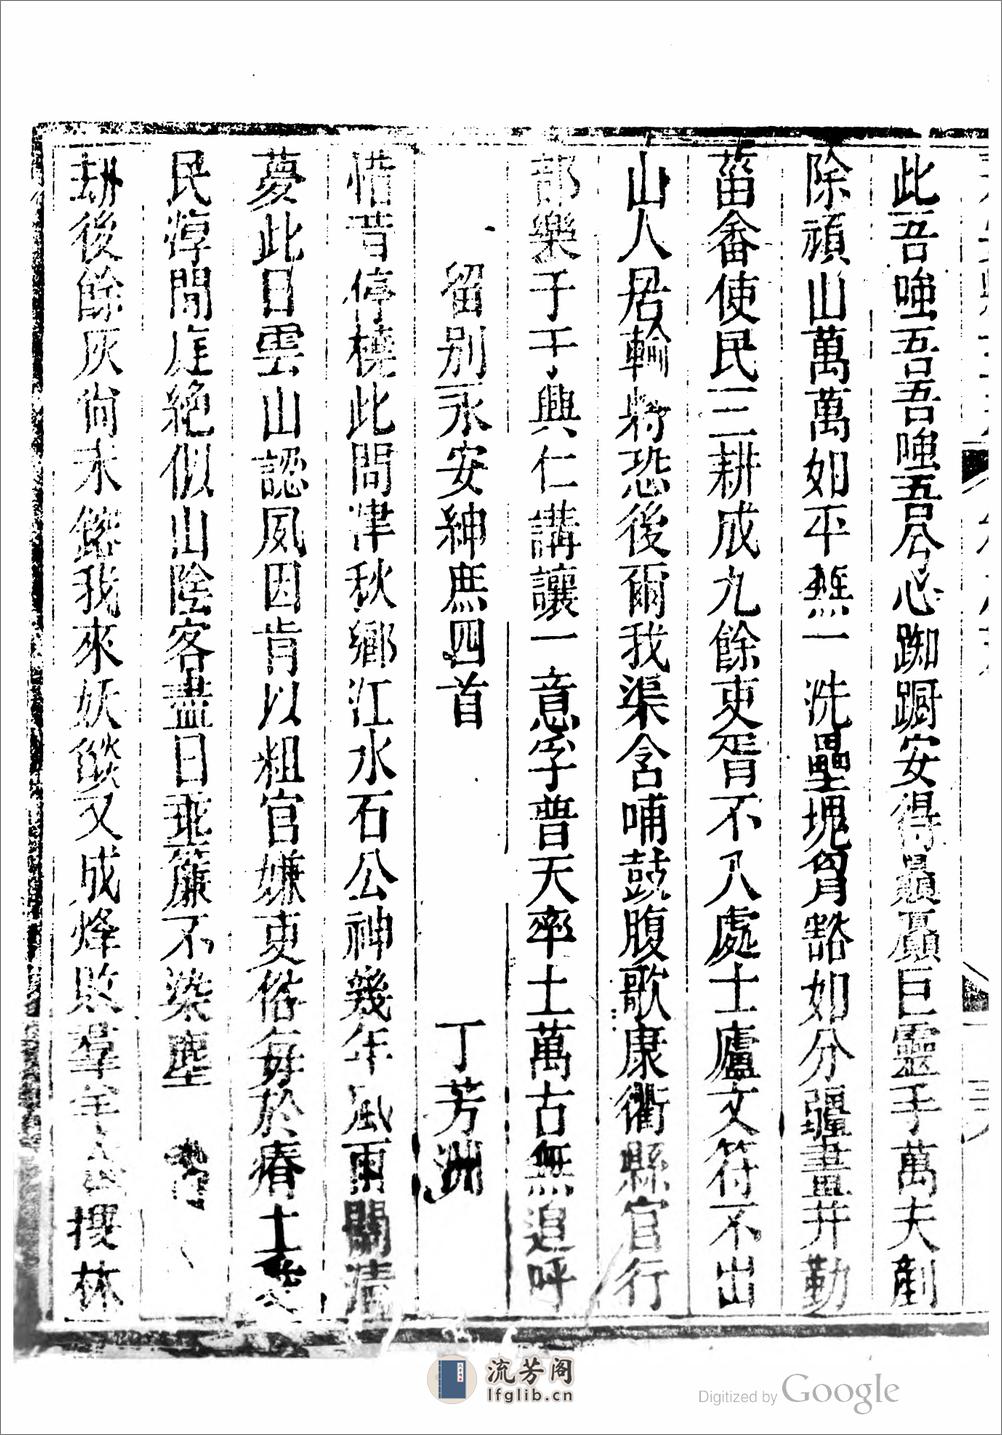 此吾嗤吾吾嗤吾公心踟蹰安得贔屭巨靈手萬夫剷
除頑山萬萬如平無一洗壘塊胷豁如分疆畫井勤
菑畬使民三耕成九餘吏胥不入處士廬文符不出
山人居輸將恐後爾我渠含哺鼓腹歌康衢縣官行
部樂于于興仁講讓一意孚普天率土萬古無追呼
留别永安紳庶四首 丁芳洲
惜昔停橈此問津秋鄉江水石公神幾年風雨關清
夢此日雲山認夙因肯以粗官嫌吏俗每於瘠土
民淳閒庭絶似山陰客盡日垂簾不染塵
劫後餘灰尙未鎔我來妖燄又成烽敗羣 搜林
流芳阁
lfglib.cn
Digitized by Google